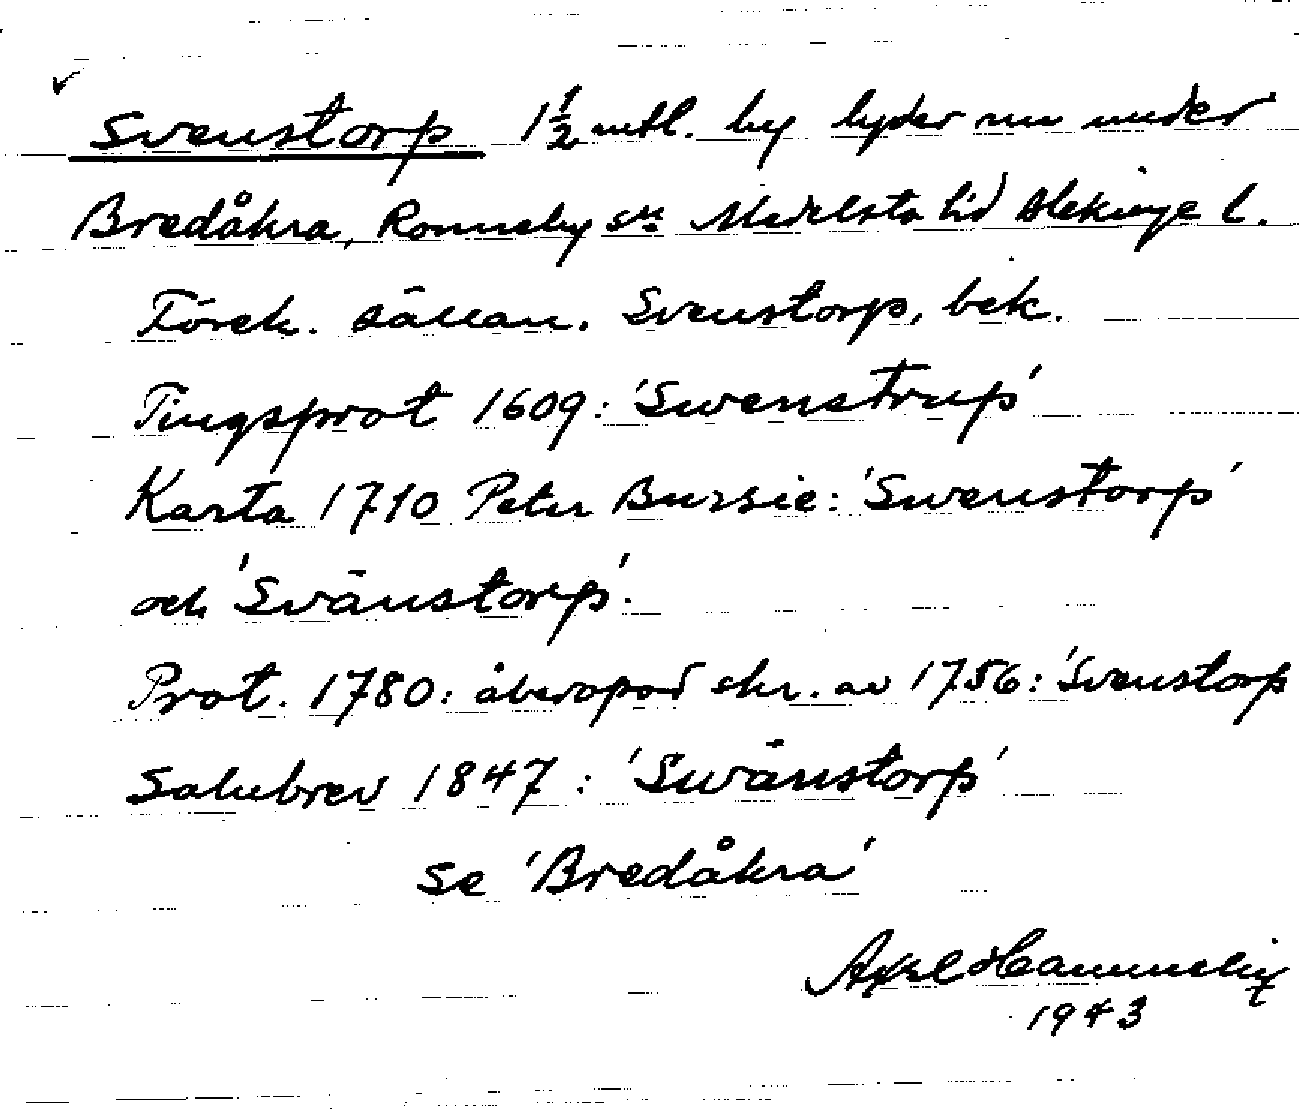 Svenstorp 1½ mtl. by lyder nu under
Bredåkra, Ronneby sn Medelsta hd Blekinge l.
Förek. sällan. Svenstorp, bek.
Tingsprot 1609: 'Swenstrup'
Karta 1710 Peter Bussie: 'Swenstorp'
och 'Svänstorp'.
Prot. 1780: åberopad skr. av 1756: 'Svenstorp
Salubrev 1847: 'Swänstorp'
se 'Bredåkra'
Axel
1943